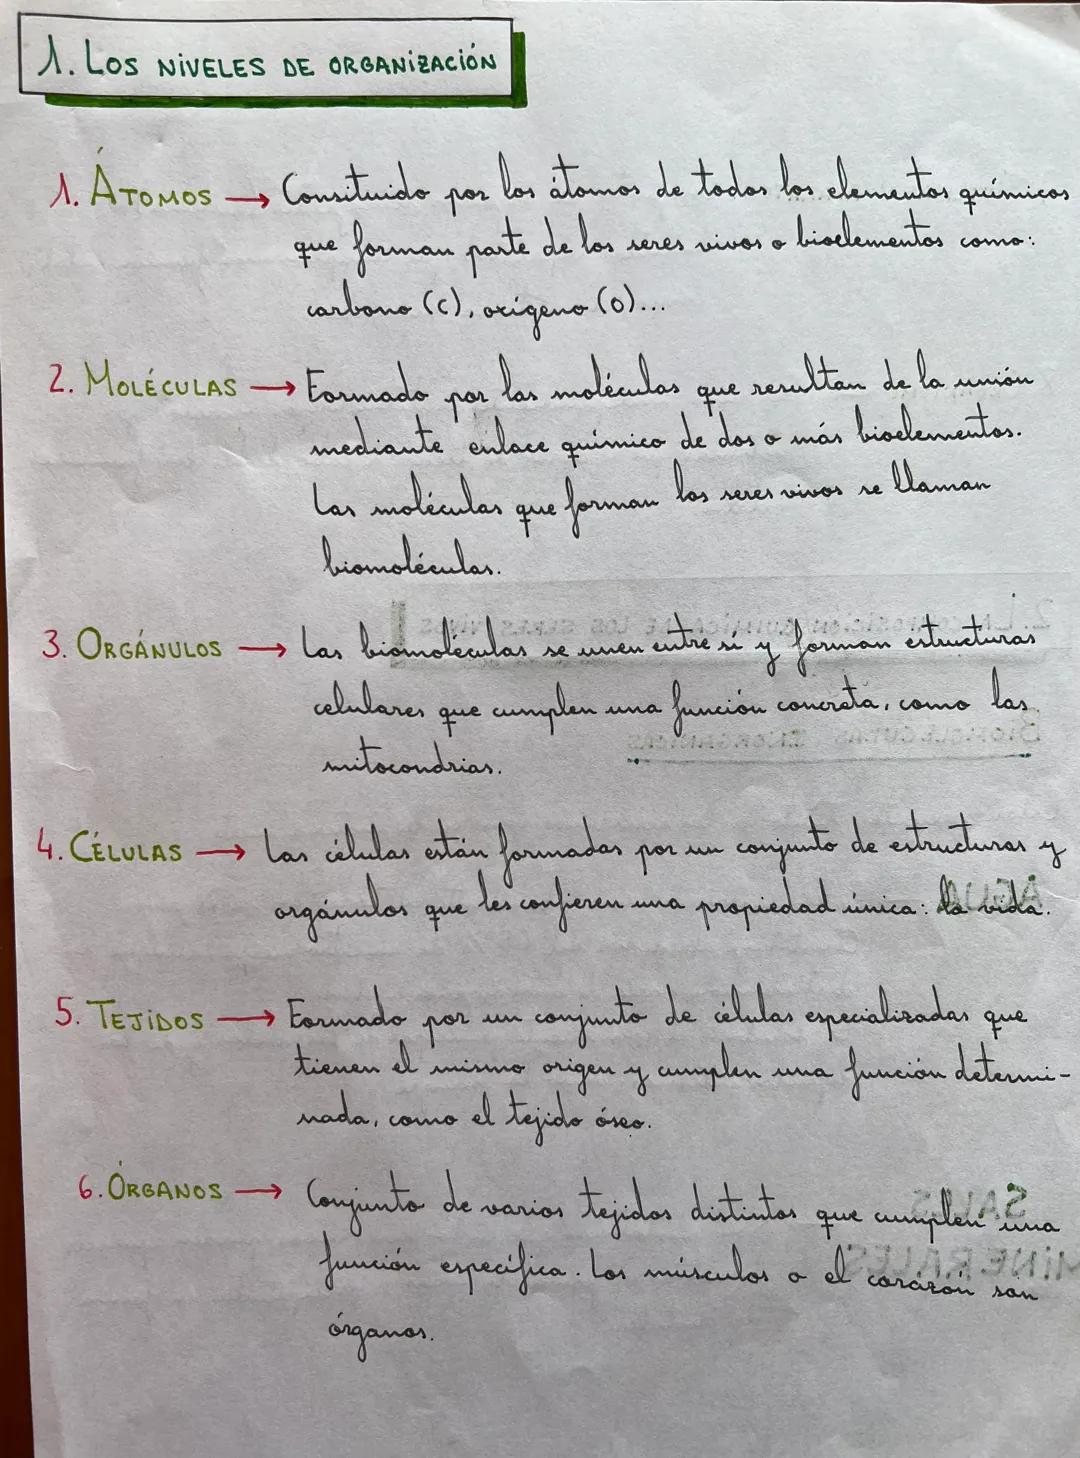 1. LOS NIVELES DE ORGANIZACIÓN
1. ÁTOMOS → Consituido por los átomos de todos los elementos químicos
que forman parte de los seres vivos o bioelementos como:
carbono (C), oxígeno (O)...
2. MOLÉCULAS → Formado por las moléculas que resultan de la unión
mediante enlace químico de dos o más bioelementos.
Las moléculas que forman los seres vivos se llaman
biomoléculas.
3. ORGÁNULOS → Las biomoléculas se unen entre sí y forman estructuras
celulares que cumplen una función concreta, como las
mitocondrias.
4. CÉLULAS → Las células están formadas por un conjunto de estructuras y
orgánulos que les confieren una propiedad única: la vida.
5. TEJIDOS → Formado por un conjunto de células especializadas que
tienen el mismo origen y cumplen una función determi-
nada, como el tejido óseo.
6. ÓRGANOS → Conjunto de varios tejidos distintos que cumplen una
función específica. Los músculos o el corazón son
órganos.